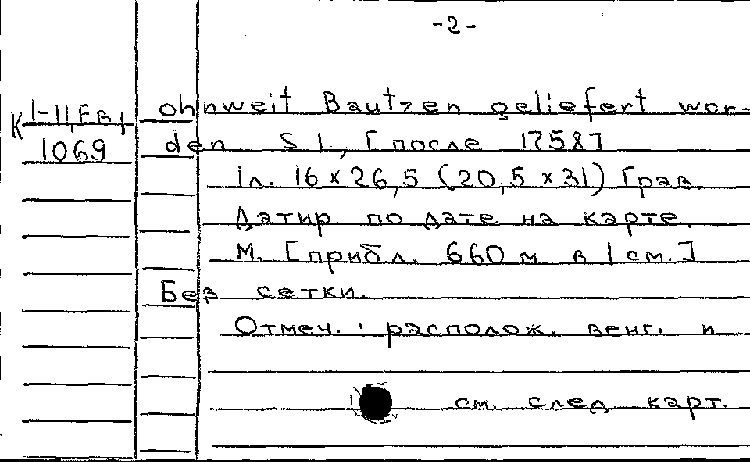 -2-
К 1-11, FB1
1069
ohnweit Bautzen geliefert wor-
den S l., [после 1758]
1л. 16 x 26,5 (20,5 x 31) Грав.
Датир по дате на карте.
М. [прибл. 660 м в 1 см.]
Без сетки.
Отмеч.: располож. венг. и
см. след карт.